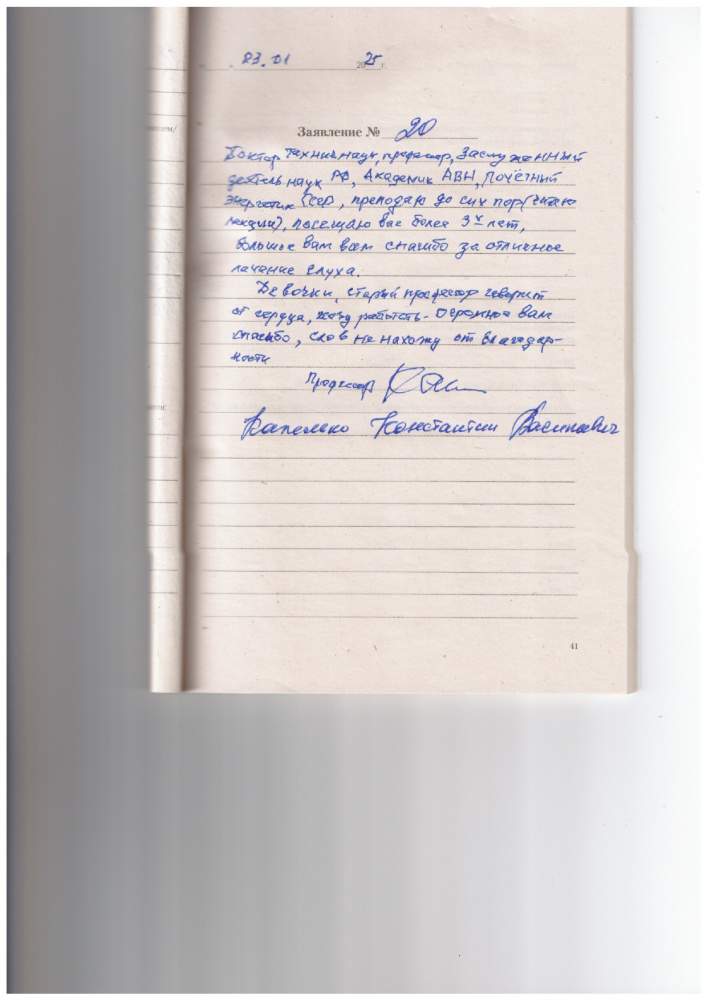 23.01 2025 г.
Заявление № 20
Доктор техн. наук, профессор, Заслуженный
деятель наук РФ, Академик АВН, Почётный
энергетик СССР, преподаю до сих пор (читаю
лекции), посещаю вас более 3х лет,
большое вам всем спасибо за отличное
лечение слуха.
Девочки, старый профессор говорит
от сердца, хочу работать. Огромное вам
спасибо, слов не нахожу от благодар-
ности
Профессор
Константин Васильевич
41